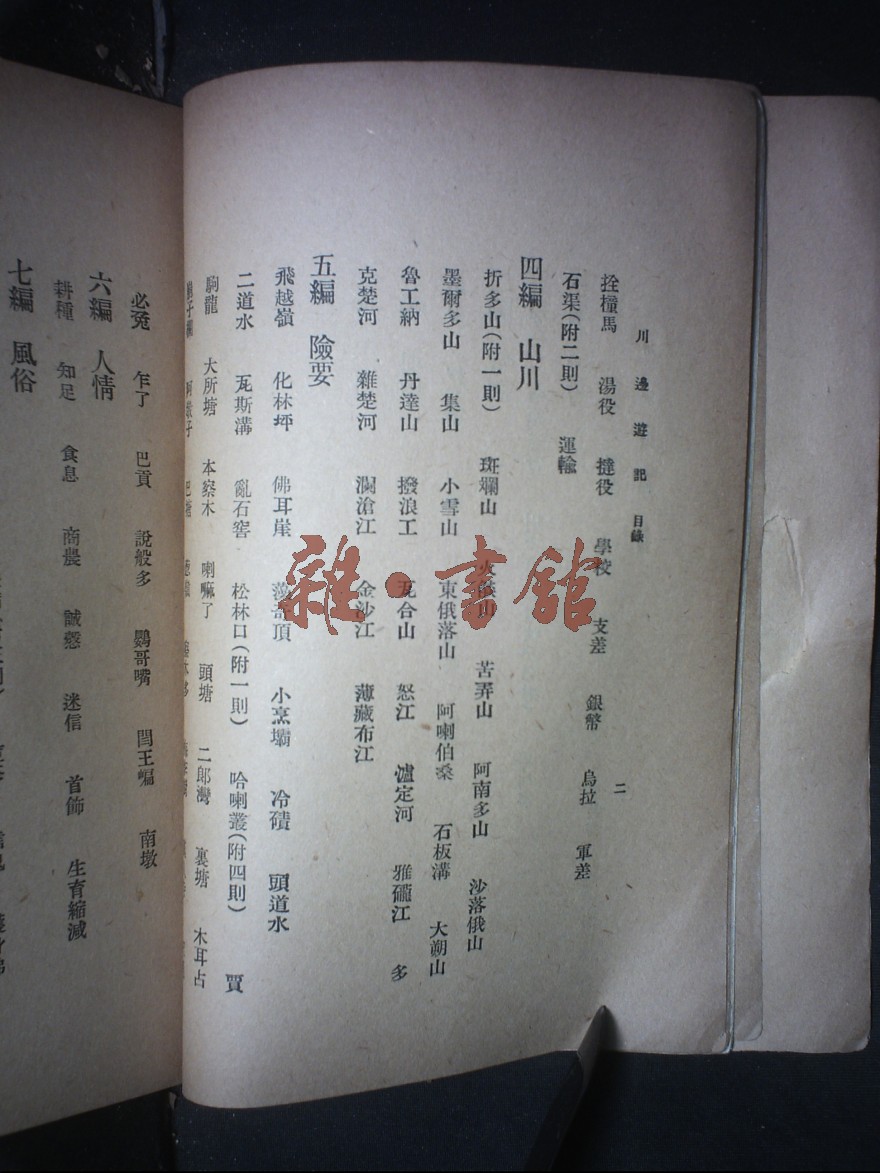 川邊遊記 目錄
二
拴橦馬 湯役 撻役 學校 支差 銀幣 烏拉 軍差
石渠(附二則) 運輸
四編 山川
折多山(附一則) 斑斕山 苦弄山 阿南多山 沙落俄山
墨爾多山 集山 小雪山 東俄落山 阿喇伯桑 石板溝 大朔山
魯工納 丹達山 撥浪工 瓦合山 怒江 瀘定河 雅礲江 多
克楚河 雜楚河 瀾滄江 金沙江 薄藏布江
五編 險要
飛越嶺 化林坪 佛耳崖 頂 小烹壩 冷磧 頭道水
二道水 瓦斯溝 亂石窖 松林口(附一則) 哈喇叢(附四則) 賈
駒龍 大所塘 本察木 喇嘛了 頭塘 二郎灣 裏塘 木耳占
必兔 乍了 巴貢 說般多 鸚哥嘴 閆王碥 南墩
六編 人情
耕種 知足 食息 商農 誠慤 迷信 首飾 生育縮減
七編 風俗
雜·書館